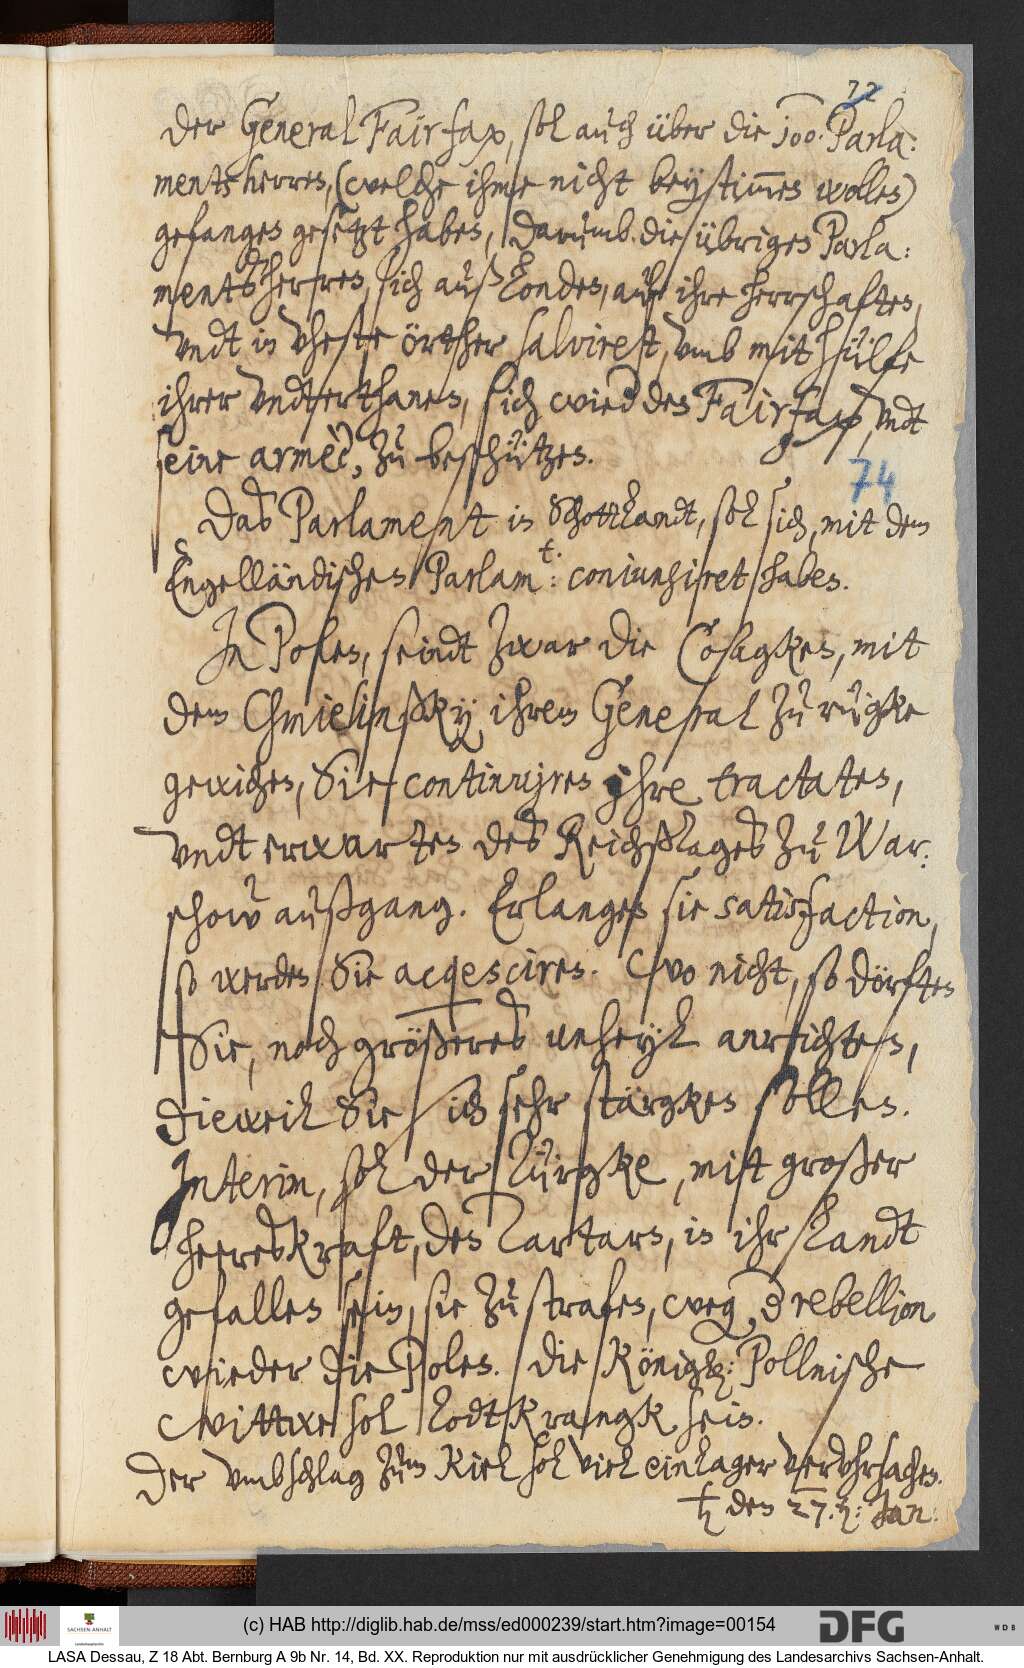 72
Der General Fairfax, sol auch über die 100. Parla:
mentsherren, (welche ihme nicht beystimmen wollen)
gefangen gesetzt haben, Darumb die übrigen Parla:
mentsherren, sich auß Londen, auf ihre herrschaften,
vndt in vheste örther salvirent, vmb mit hülfe
ihrer vndterthanen, sich wied den Fairfax, vndt
seine armèè, zu beschützen.
74
Das Parlament in Schottlandt, sol sich, mit dem
Engelländischen Parlamt: coniungiret haben.
In Polen, seindt zwar die Cosagken, mit
dem Chmielinßky ihrem General zu rügke
gewichen, Sie continuiren ihre tractaten,
vndt erwarten des Reichßtages zu War:
schow außgang. Erlangen sie satisfaction,
so werden Sie acqesciren. Wo nicht, so dörften
Sie, noch größeres unheyl anrichten,
dieweil Sie sich sehr stärgken sollen.
Interim, sol der Türgke, mit großer
heereskraft, den Tartarn, in ihr Landt
gefallen sein, sie zu strafen, weg. d rebellion
wieder die Polen. Die Königl: Pollnische
Wittwe sol todtkrangk sein.
Der vmbschlag zum Kiel sol viel einlager vervhrsachen.
♄ den 27. h: Jan:
(c) HAB http://diglib.hab.de/mss/ed000239/start.htm?image=00154
SACHSEN-ANHALT
DFG
WDB
LASA Dessau, Z 18 Abt. Bernburg A 9b Nr. 14, Bd. XX. Reproduktion nur mit ausdrücklicher Genehmigung des Landesarchivs Sachsen-Anhalt.